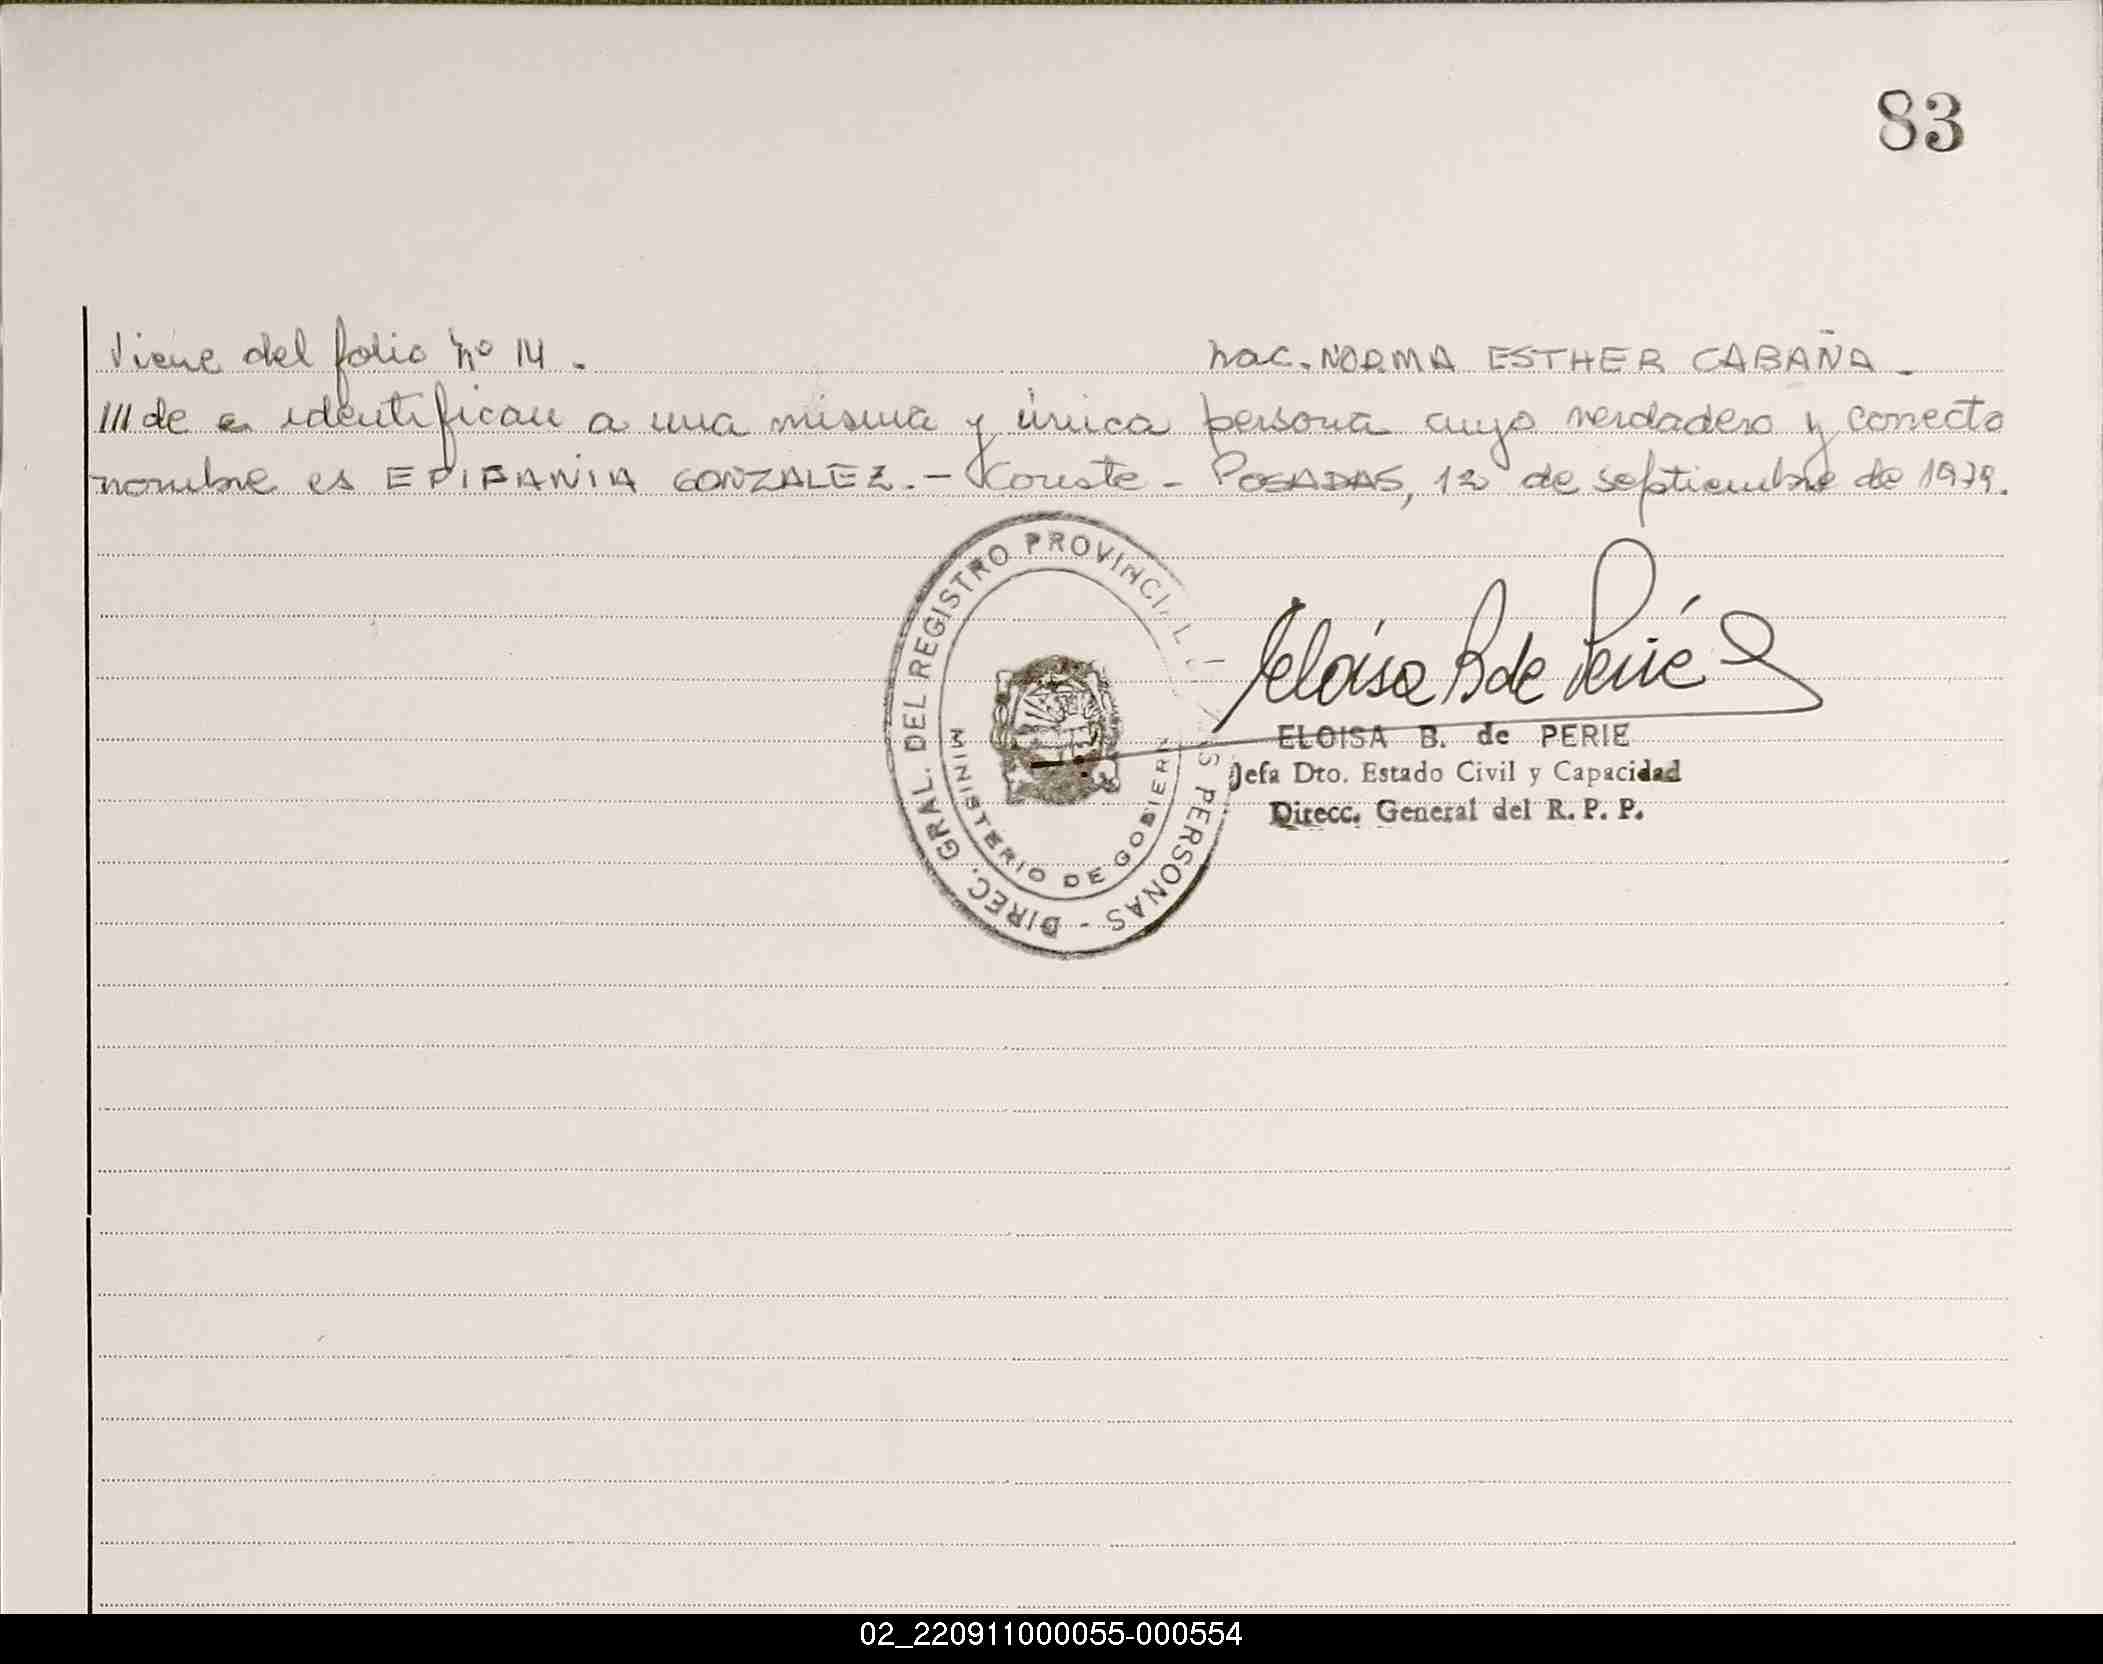 83
Viene del folio Nº 14. Nac. NORMA ESTHER CABAÑA.
///de e identifican a una misma y única persona cuyo verdadero y correcto
nombre es EPIFANIA GONZALEZ.- Conste - POSADAS, 12 de septiembre de 1979.
DIREC. GRAL. DEL REGISTRO PROVINCIAL PERSONAS -
MINISTERIO DE GOBIER
Eloísa B de Perié
ELOISA B. de PERIE
Jefa Dto. Estado Civil y Capacidad
Direcc. General del R. P. P.
02_220911000055-000554